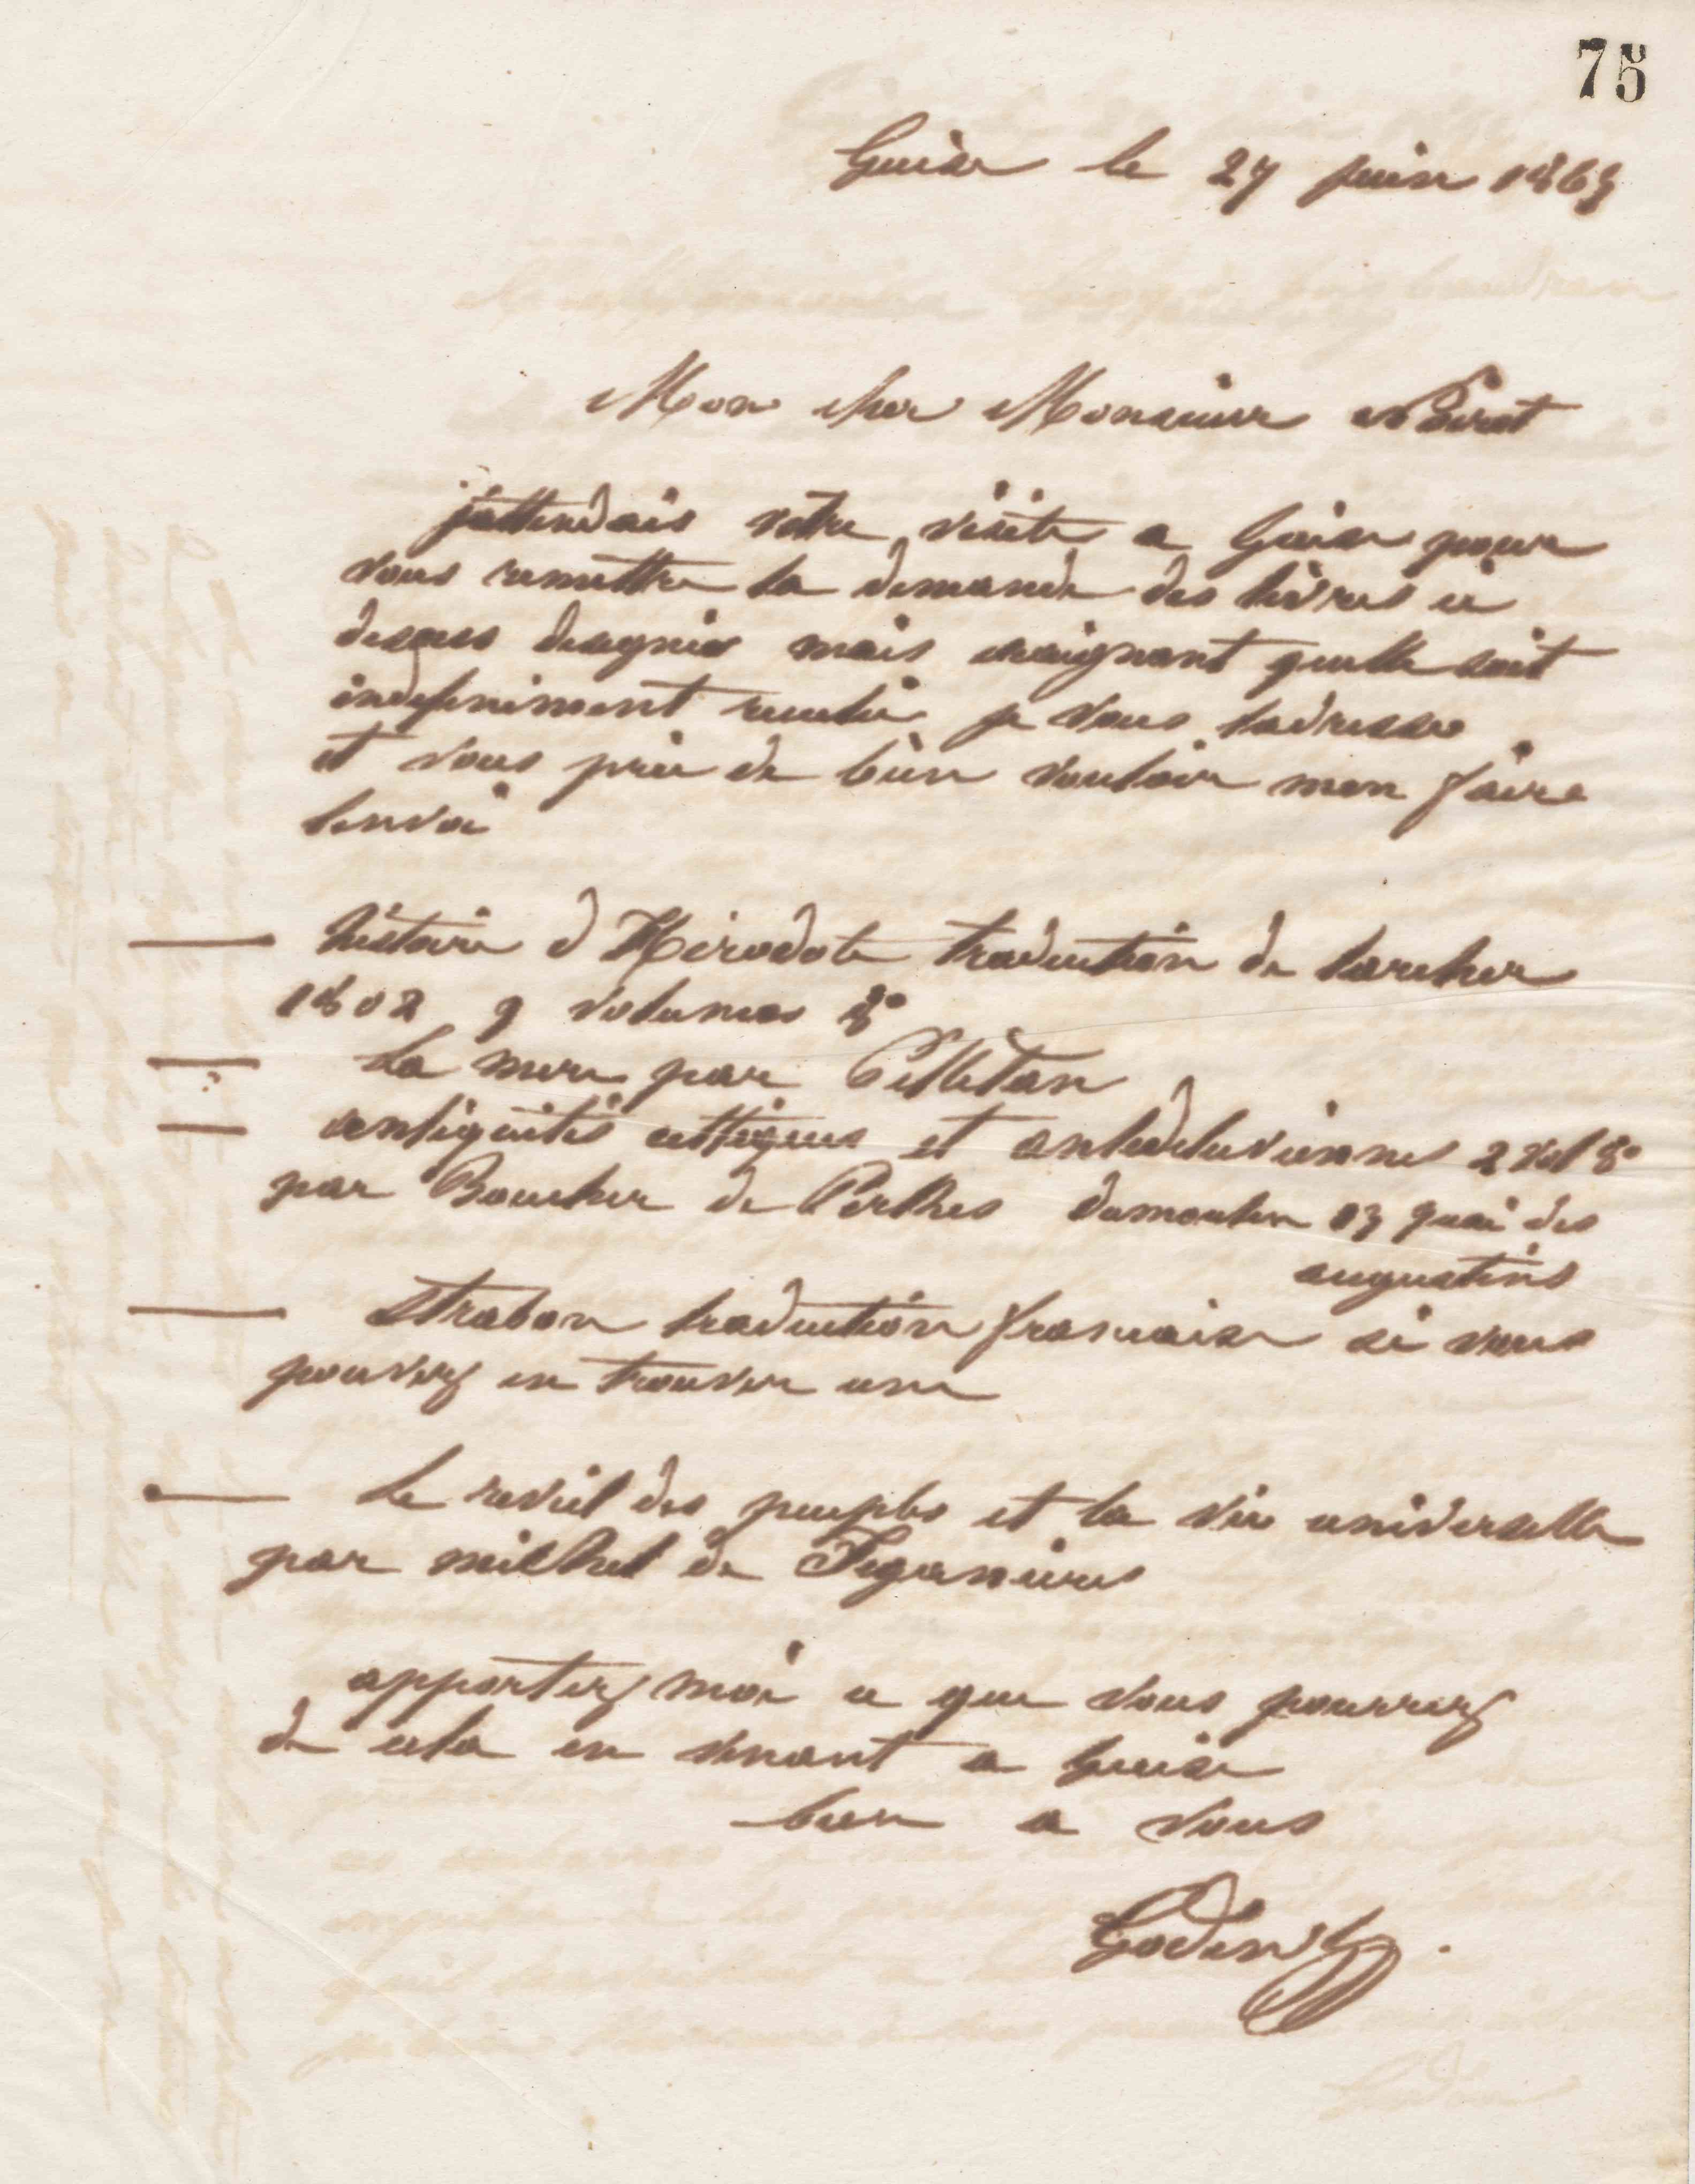 75
Guise le 27 juin 1863
Mon cher Monsieur
jattendais votre visite a Guise pour
vous remettre la demande des livres ci
desous designés mais craignant quelle soit
indefiniment reculée je vous ladresse
et vous prie de bien vouloir men faire
lenvoi
histoire d Hérodote traduction de larcher
1802 9 volumes 8°
La mere par Pelletan
antiquités celtiques et antediluviennes 2 vol 8°
par Boucher de Perthes dumoulin 13 quai des
augustins
Strabon traduction francaise si vous
pouvez en trouver une
Le reveil des peuples et la vie universelle
par michel de Figanieres
apportez moi ce que vous pourrez
de cela en venant a Guise
bien a vous
Godin